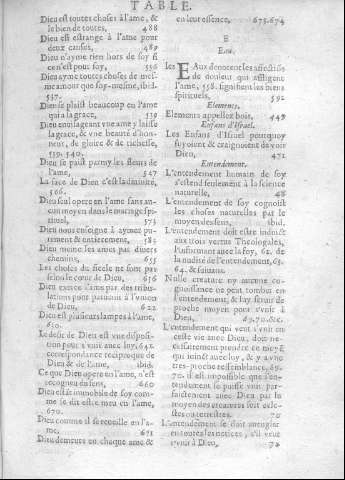 TABLE.
Dieu est toutes choses à l'ame, &
le bien de toutes, 488
Dieu est estrange à l'ame pour
deux causes, 489
Dieu n'ayme rien hors de soy si
ce n'est pour soy, 556
Dieu ayme toutes choses de mes-
me amour que soy-mesme, ibid.
557.
Dieu se plaist beaucoup en l'ame
qui a la grace, 539
Dieu enuisageant vne ame y laisse
la grace, & vne beauté d'hon-
neur, de gloire & de richesse,
539. 540.
Dieu se paist parmy les fleurs de
l'ame, 547
La face de Dieu c'est la diuinité,
566.
Dieu seul opere en l'ame sans au-
cun moyen dans le mariage spi-
rituel, 573
Dieu nous enseigne à aymer pu-
rement & entierement, 585
Dieu meine les ames par diuers
chemins, 655
Les choses du siecle ne sont pas
selon le cœur de Dieu, 656
Dieu exerce l'ame par des tribu-
lations pour paruenir à l'vnion
de Dieu, 622
Dieu est plusieurs lampes à l'ame,
610.
Le desir de Dieu est vne disposi-
tion pour s'vnir auec luy, 642
correspondance reciproque de
Dieu & de l'ame, ibid.
Ce que Dieu opere en l'ame, n'est
recogneu du sens, 660
Dieu estãt immobile de soy com-
me se dit estre meu en l'ame,
670.
Dieu comme il se recueille en l'a-
me, 671
Dieu demeure en chaque ame &
en leur essence, 673. 674
E
Eau.
les EAux denotent les affectiõs
de douleur qui affligent
l'ame, 558. signifient les biens
spirituels, 591
Elemens.
Elemens appellez bois, 449
Enfans d'Israel.
Les Enfans d'Israel pourquoy
fuyoient & craignoient de voir
Dieu, 471
Entendement.
L'entendement humain de soy
s'estend seulement à la science
naturelle, 48
L'entendement de soy cognoist
les choses naturelles par le
moyen des sens, ibid.
L'entendement doit estre induit
aux trois vertus Theologales,
l'instruisant auec la foy, 62. de
la nudité de l'entendement, 63.
64. & suiuans.
Nulle creature ny aucune co-
gnoissance ne peut tomber en
l'entendement, & luy seruir de
proche moyen pour s'vnir à
Dieu, 69. 70. &c.
L'entendement qui veut s'vnir en
ceste vie auec Dieu, doit ne-
cessairement prendre ce moyẽ
qui vnit auec luy, & y a vne
tres-proche ressemblance, 69.
70. il est impossible que l'en-
tendement se puisse vnir par-
faictement auec Dieu par le
moyen des creatures soit cele-
stes ou terrestres. 70
L'entendement se doit aueugler
en toutes les notices, s'il veut
s'vnir à Dieu, 74